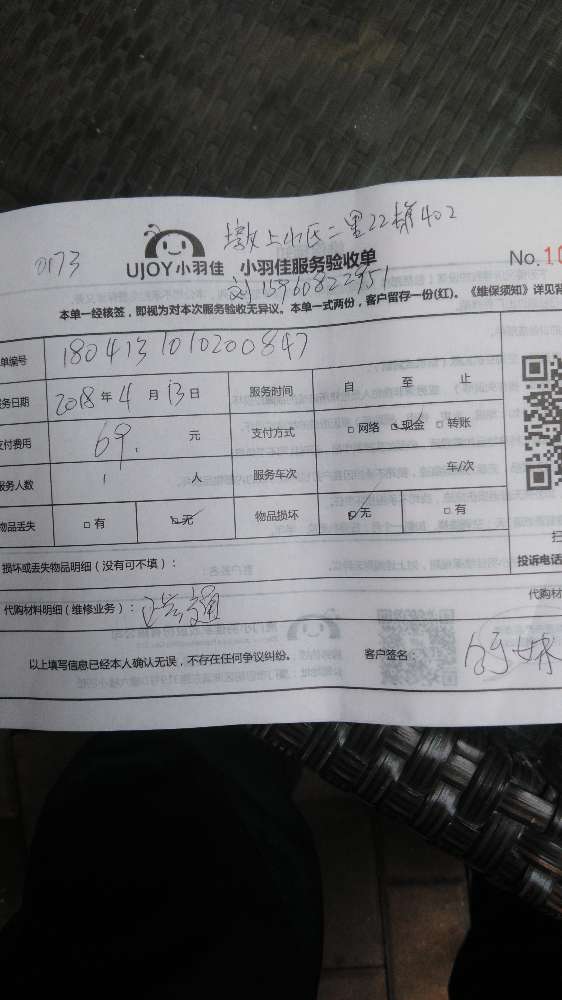 墩上小区二里22梯402
0173
UJOY小羽佳 小羽佳服务验收单
No.10
刘15960822951
本单一经核签，即视为对本次服务验收无异议。本单一式两份，客户留存一份(红)。《维保须知》详见背
单编号 1804131010200847
服务日期 2018年4月13日 服务时间 自 至 止
支付费用 69. 元 支付方式 □网络 □现金 □转账
服务人数 1 人 服务车次 车/次
物品丢失 □有 □无 物品损坏 □无 □有
损坏或丢失物品明细（没有可不填）：
投诉电话
代购材料明细（维修业务）：
代购材
以上填写信息已经本人确认无误，不存在任何争议纠纷。 客户签名：